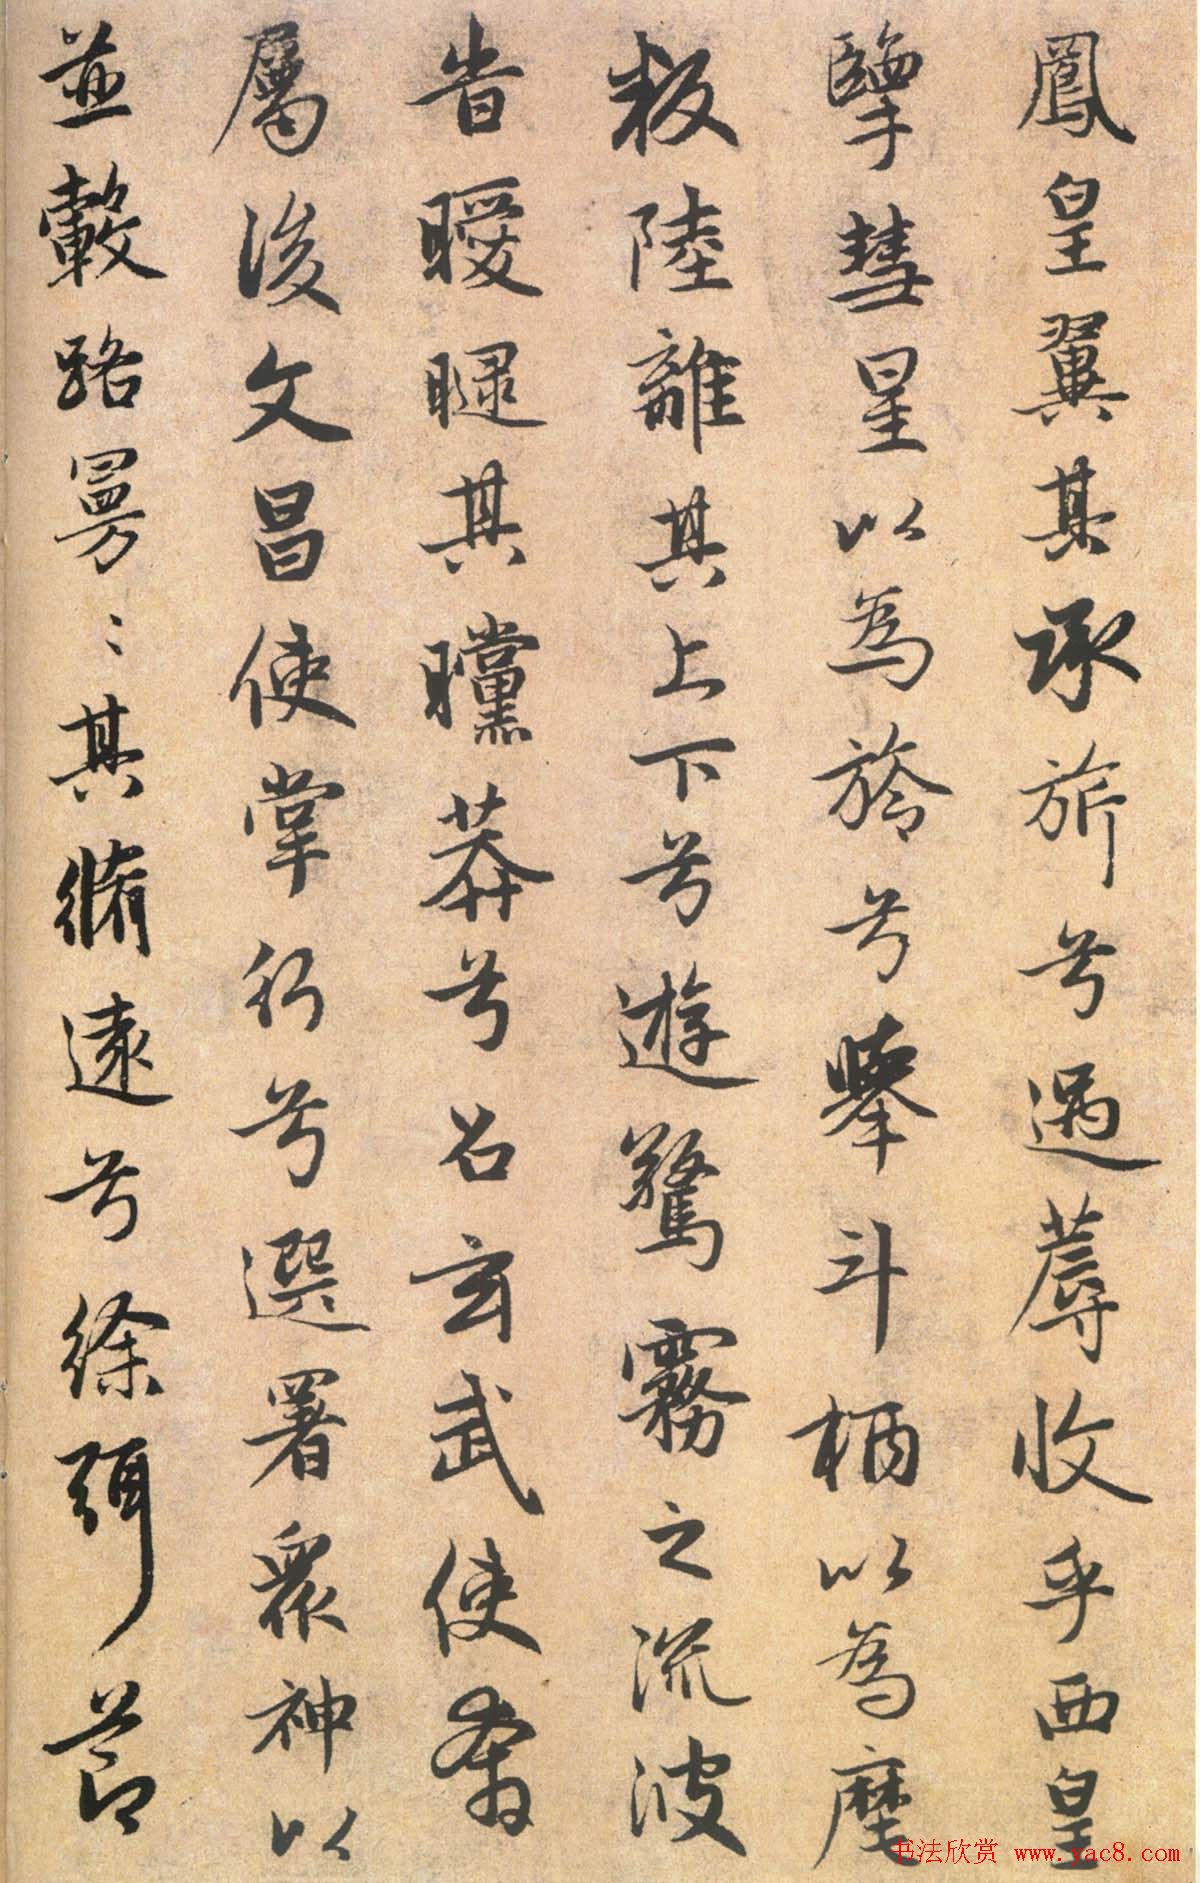 鳳皇翼其承旂兮遇蓐收乎西皇
擥彗星以為旍兮舉斗柄以為麾
叛陸離其上下兮遊驚霧之流波
旹曖曃其曭莽兮召玄武使奔
屬後文昌使掌行兮選署眾神以
並轂路曼〻其脩遠兮徐弭節
书法欣赏 www.yac8.com